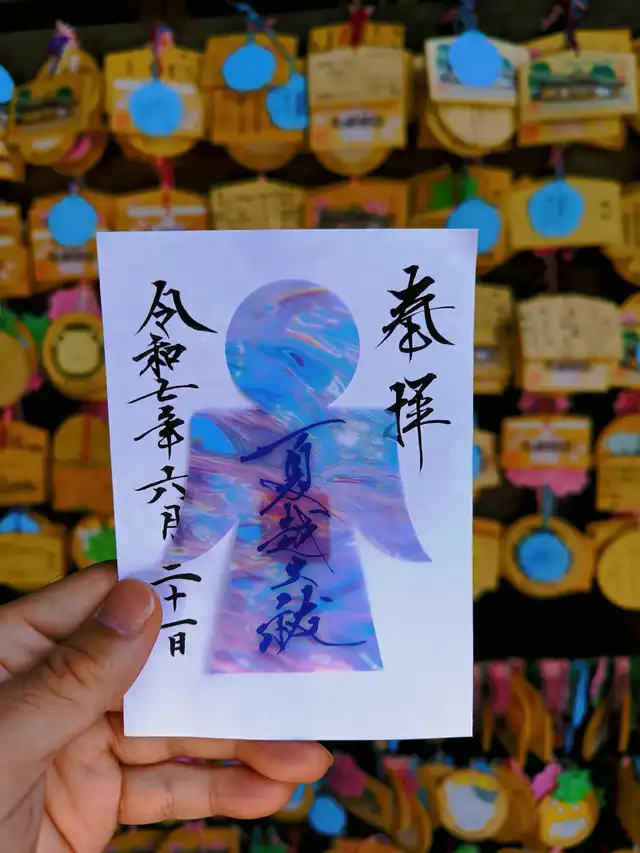 奉拝
夏越大祓
令和七年六月二十一日